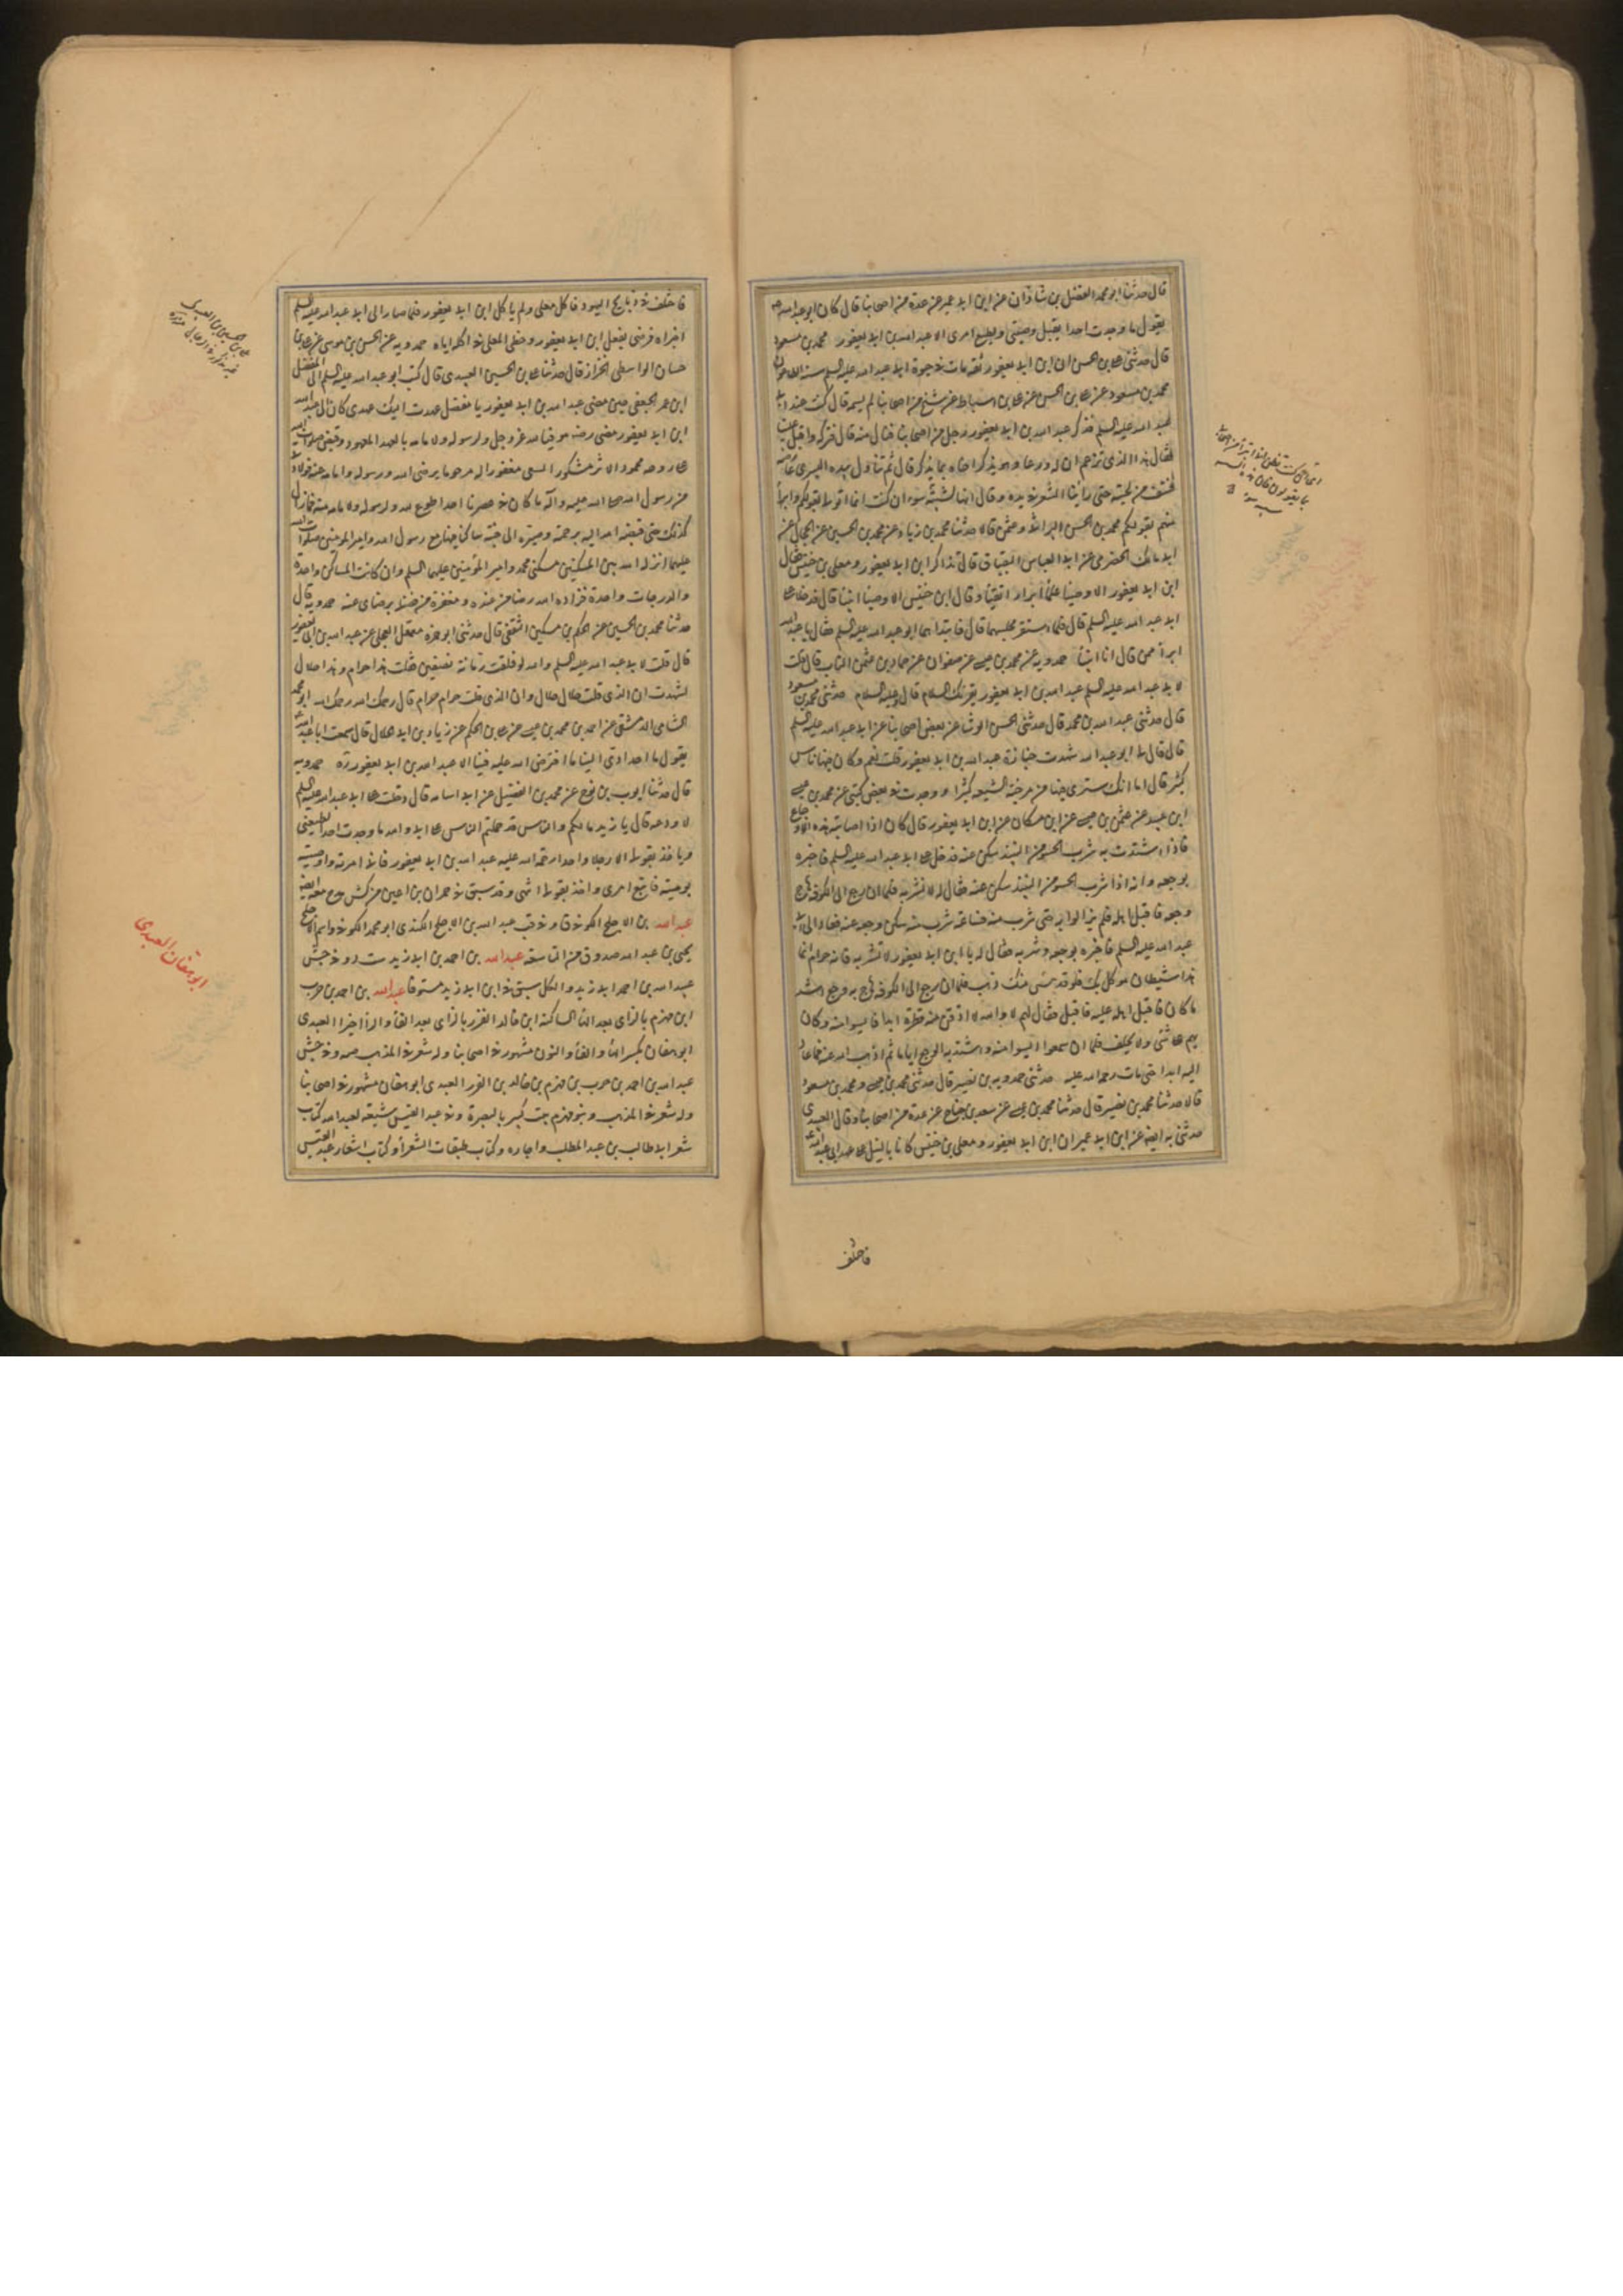 قال حدثنا ابو محمد الفضل بن شاذان عن ابن ابي عمير عن عدة من اصحابنا قال كان ابو عبد الله ع
يقول ما وجدت احدا يقبل وصيتي ويطيع امري الا عبد الله بن ابي يعفور محمد بن مسعود
قال حدثني علي بن الحسن ان ابن ابي يعفور ثقة مات في حيوة ابي عبد الله عليه السلم سنة الطاعون
محمد بن مسعود عن علي بن الحسن عن علي بن اسباط عن شيخ من اصحابنا لم يسمه قال كنت عند ابي
عبد الله عليه السلم فذكر عبد الله بن ابي يعفور رجل من اصحابنا فنال منه قال فتركه واقبل علينا
فقال هذا الذي تزعم ان له ورعا وهو يذكر اخاه بما يذكر قال ثم تناول بيده اليسرى
فنتف من لحيته حتى رأينا الشعر في يده وقال انها لشيبة سوء ان كنت انما اتولا بقولكم وابرأ
منهم بقولكم محمد بن الحسن البراثي وعثمن قالا حدثنا محمد بن زياد عن محمد بن الحسين عن الحجال عن
ابي مالك الحضرمي عن ابي العباس البقباق قال تذاكر ابن ابي يعفور ومعلى بن خنيس فقال
ابن ابي يعفور الاوصياء علماء ابرار اتقياء وقال ابن خنيس الاوصياء انبياء قال فدخلا على
ابي عبد الله عليه السلم قال فلما استقر مجلسهما قال فابتداهما ابو عبد الله عليه السلم فقال يا عبد الله
ابرأ ممن قال انا انبياء حمدويه عن محمد بن عيسى عن صفوان عن حماد بن عثمن الناب قال قلت
لابي عبد الله عليه السلم عبد الله بن ابي يعفور يقرئك السلام قال وعليه السلام حدثني محمد بن مسعود
قال حدثني عبد الله بن محمد قال حدثني الحسن الوشا عن بعض اصحابنا عن ابي عبد الله عليه السلم
قال قال لي ابو عبد الله شهدت جنازة عبد الله بن ابي يعفور قلت نعم وكان فيها ناس
كثير قال اما انك سترى فيها من مرجئة الشيعة كثيرا ووجدت في بعض كتبي عن محمد بن عيسى
ابن عبيد عن عثمن بن عيسى عن ابن مسكان عن ابن ابي يعفور قال كان اذا اصابته هذه الاوجاع
فاذا اشتدت به شرب الحسو من النبيذ سكن عنه فدخل على ابي عبد الله عليه السلم فاخبره
بوجعه وانه اذا شرب الحسو من النبيذ سكن عنه فقال له لا تشربه فلما ان رجع الى الكوفة هاج
وجعه فاقبل اهله فلم يزالوا به حتى شرب منه فساعة شرب منه سكن وجعه عنه فعاد الى ابي
عبد الله عليه السلم فاخبره بوجعه وشربه فقال له يا ابن ابي يعفور لا تشربه فانه حرام انما
هذا شيطان موكل بك فلو قد يئس منك ذهب فلما ان رجع الى الكوفة هاج به وجع اشد
ما كان فاقبل اهله عليه فاقبل فقال لهم لا والله لا اذوقن منه قطرة ابدا فايسوا منه وكان
يهم على شئ ولا يحلف فلما ان سمعوا ايسوا منه واشتد به الوجع اياما ثم اذهب الله عنه فما عاد
اليه ابدا حتى مات رحمة الله عليه حدثني حمدويه بن نصير قال حدثني محمد بن عيسى ومحمد بن مسعود
قالا حدثنا محمد بن نصير قال حدثنا محمد بن عيسى عن سعيد بن جناح عن عدة من اصحابنا وقال العبيدي
حدثني به ايضا عن ابن ابي عمير ان ابن ابي يعفور ومعلى بن خنيس كانا بالنيل على عهد ابي عبد الله
فاختلف
فاختلفا في ذبايح اليهود فاكل معلى ولم ياكل ابن ابي يعفور فلما صارا الى ابي عبد الله عليه السلم
اخبراه فرضي بفعل ابن ابي يعفور وخطى المعلى في اكله اياه حمدويه عن الحسن بن موسى عن علي بن
حسان الواسطي الخزاز قال حدثنا علي بن الحسين العبيدي قال كتب ابو عبد الله عليه السلم الى المفضل
ابن عمر الجعفي حين مضى عبد الله بن ابي يعفور يا مفضل عهدت اليك عهدي كان الى عبد الله
ابن ابي يعفور فمضى رضه موفيا لله عز وجل ولرسوله ولامامه بالعهد المعهود وقبض صلوات الله
على روحه محمود الاثر مشكور السعي مغفورا له مرحوما برضى الله ورسوله وامامه عنه فولادتي
من رسول الله صلى الله عليه وآله ما كان في عصرنا احد اطوع لله ولرسوله ولامامه منه فما زال
كذلك حتى قبضه الله اليه برحمته وصيره الى جنته ساكنا فيها مع رسول الله وامير المؤمنين صلوات الله
عليهما انزله الله بين المسكنين مسكني محمد وامير المؤمنين عليهما السلم وان كانت المساكن واحدة
والدرجات واحدة فزاده الله رضا من عنده ومغفرة من فضله برضاي عنه حمدويه قال
حدثنا محمد بن الحسين عن الحكم بن مسكين الثقفي قال حدثني ابو حمزة معقل العجلي عن عبد الله بن ابي يعفور
قال قلت لابي عبد الله عليه السلم والله لو فلقت رمانة بنصفين فقلت هذا حرام وهذا حلال
لشهدت ان الذي قلت حلال حلال وان الذي قلت حرام حرام قال رحمك الله رحمك الله ابو محمد
الشامي الدمشقي عن احمد بن محمد بن عيسى عن علي بن الحكم عن زياد بن ابي الحلال قال سمعت ابا عبد الله
يقول ما احد ادى الينا ما افترض الله عليه فينا الا عبد الله بن ابي يعفور ره حمدويه
قال حدثنا ايوب بن نوح عن محمد بن الفضيل عن ابي اسامه قال دخلت على ابي عبد الله عليه السلم
لاودعه قال يا زيد ما لكم والناس قد حملتم الناس على ابي والله ما وجدت احدا يطيعني
وياخذ بقولي الا رجلا واحدا رحمة الله عليه عبد الله بن ابي يعفور فاني امرته واوصيته
بوصيته فاتبع امري واخذ بقولي انتهى وقد سبق في حمران بن اعين من كش مدح معه ايضا
عبد الله بن الاجلح الكوفي ق وفي قب عبد الله بن الاجلح الكندي ابو محمد الكوفي واسم الاجلح
يحيى بن عبد الله صدوق من التاسعة عبد الله بن احمد بن ابي زيد ست د وفي جش
عبيد الله بن احمد ابي زيد والكل سبق في ابن ابي زيد مستوفا عبد الله بن احمد بن حرب
ابن مهزم بالزاي بعد الهاء الساكنة ابن خالد الفزر بالزاي بعد الفاء والراء اخيرا العبدي
ابو هفان بكسر الهاء والفاء والنون مشهور في اصحابنا وله شعر في المذهب صه وفي جش
عبد الله بن احمد بن حرب بن مهزم بن خالد بن الفزر العبدي ابو هفان مشهور في اصحابنا
وله شعر في المذهب وبنو مهزم بيت كبير بالبصرة في عبد القيس شيعة لعبد الله كتاب
شعر ابي طالب بن عبد المطلب واخباره وكتاب طبقات الشعراء وكتاب اشعار عبد القيس
ابو هفان العبدي